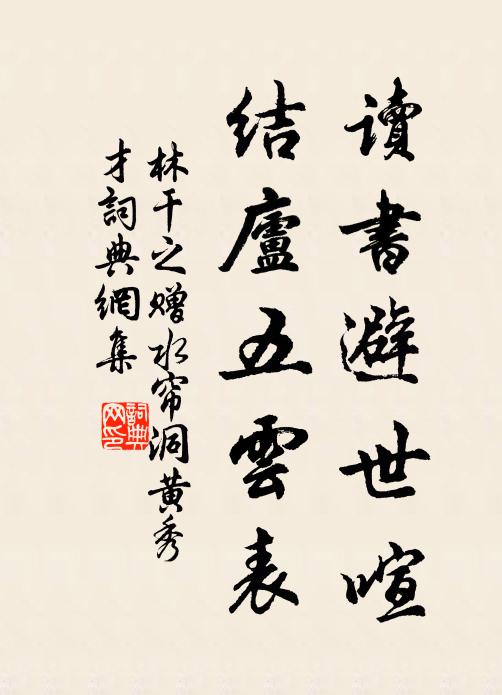 讀書避世喧
結廬五雲表
林干之赠水帘洞黄秀
才詞典網集
詞典
网印